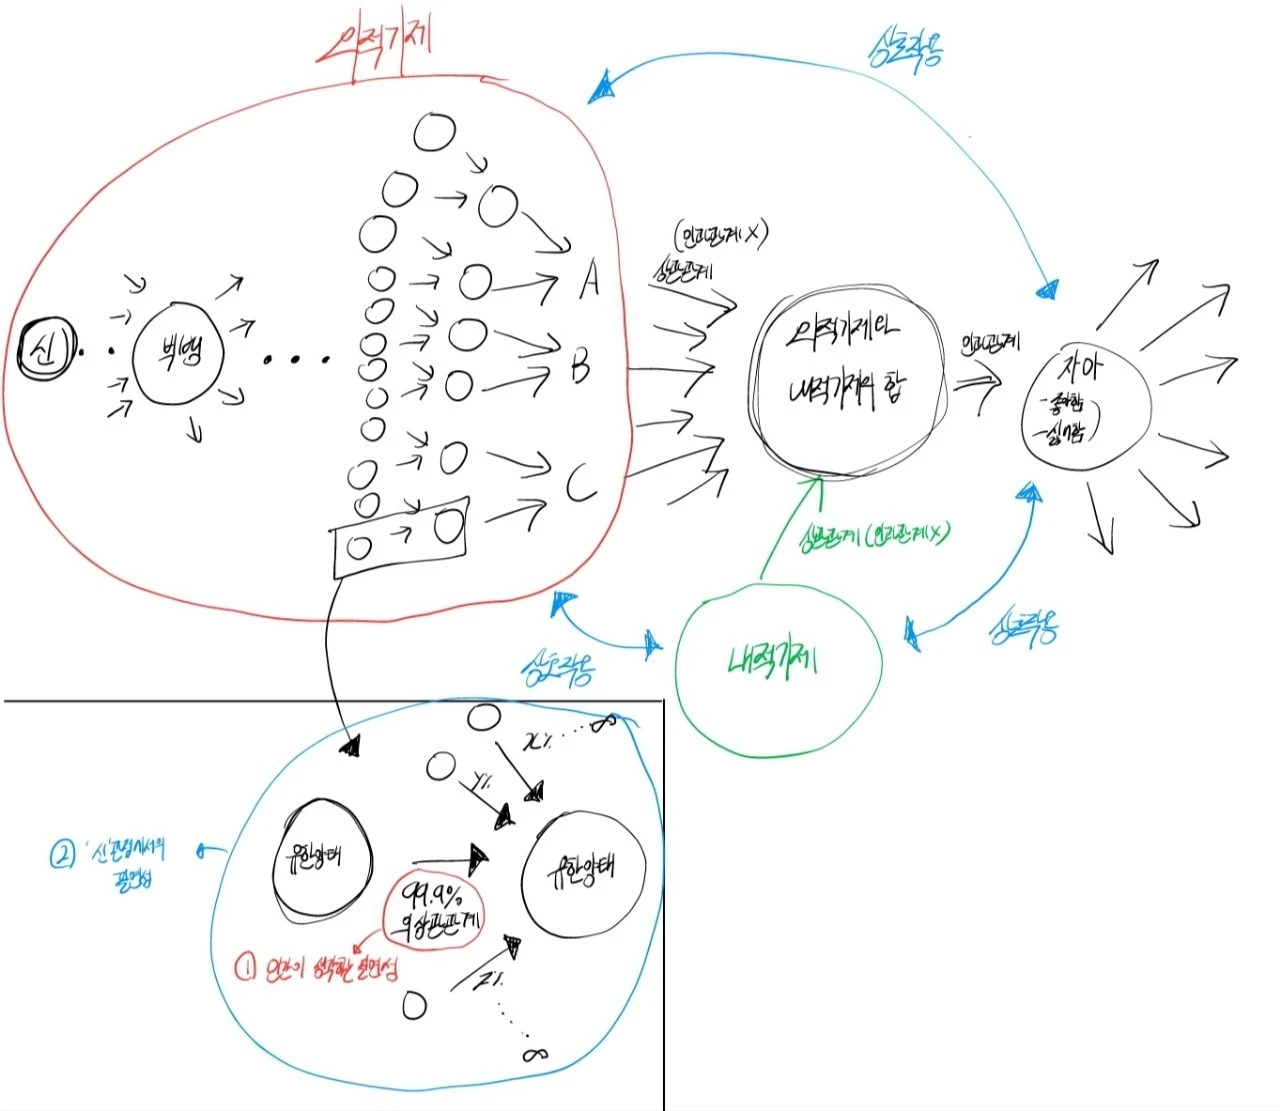 외적기제
상호작용
신
빅뱅
A
B
C
(인과관계 X)
상관관계
외적기제와
내적기제의 합
인과관계
자아
- 좋아함
- 싫어함
상관관계 (인과관계 X)
내적기제
상호작용
상호작용
X%
∞
Y%
유한양태
유한양태
99.9%
의 상관관계
① 인간이 생각하는 필연성
② '신'관점에서의
필연성
Z%
∞